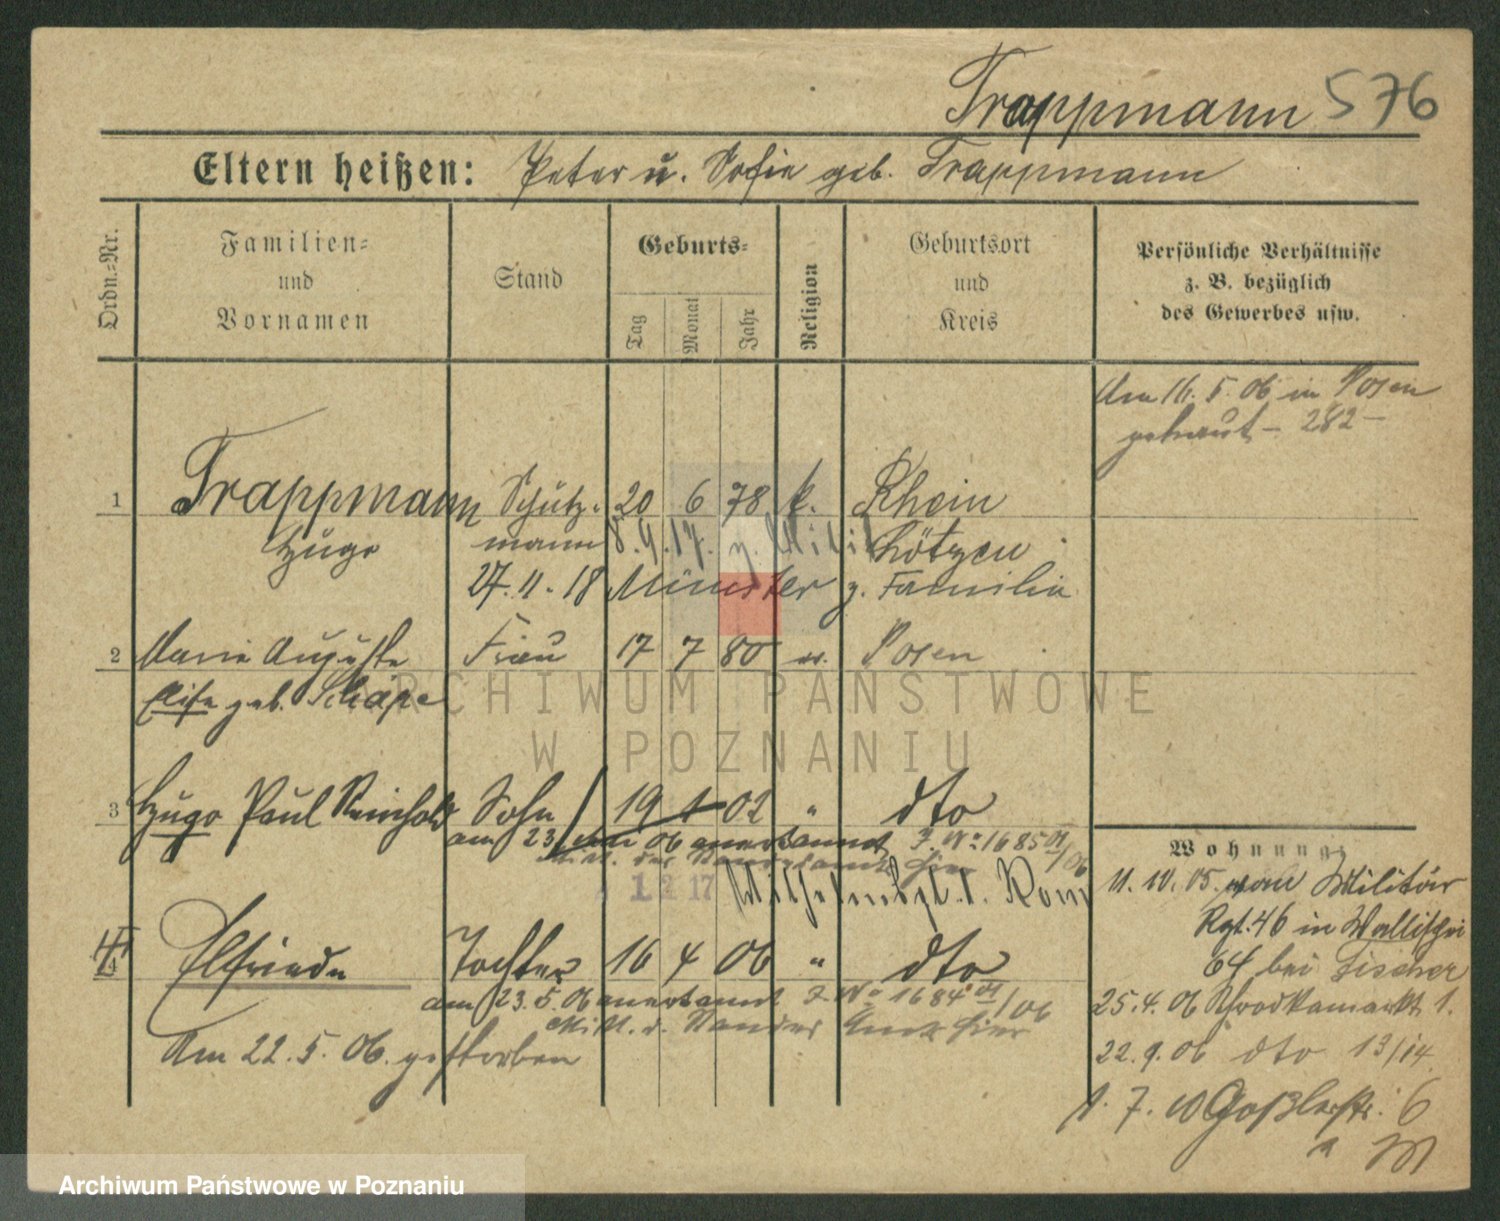 Trappmann 576
Eltern heißen: Peter u. Sofie geb. Trappmann
Ordn.-Nr.
Familien-
und
Vornamen
Stand
Geburts-
Tag
Monat
Jahr
Religion
Geburtsort
und
Kreis
Persönliche Verhältnisse
z. B. bezüglich
des Gewerbes usw.
Am 16. 5. 06 in Posen
getraut – 282 –
1 Trappmann Schutz- 20 6 78 k. Rhein
Hugo mann 8. 9. 17. z. Milit Lötzen
27. 11. 18 Münster z. Familie
2 Marie Auguste Frau 17 7 80 Posen
Elise geb. Schäpe
ARCHIWUM PAŃSTWOWE
W POZNANIU
3 Hugo Paul Reinhold Sohn 19 1 02 " dto
am 23 06 anerkannt J. No 1685 /06
Mitt. des Standesamts hier
1 2 17
4 Elfriede Tochter 16 4 06 " dto
am 23. 5. 06 anerkannt J. No 1684 /06
Mitt. d. Standes Amts hier
Am 22. 5. 06. gestorben
Wohnung:
11. 10. 05. vom Militär
Rgt. 46 in Wallischei
64 bei Fischer
25. 4. 06 Schrodkamarkt 1.
22. 9. 06 dto 13/14
1. 7. 10 Goßlerstr. 6
Archiwum Państwowe w Poznaniu